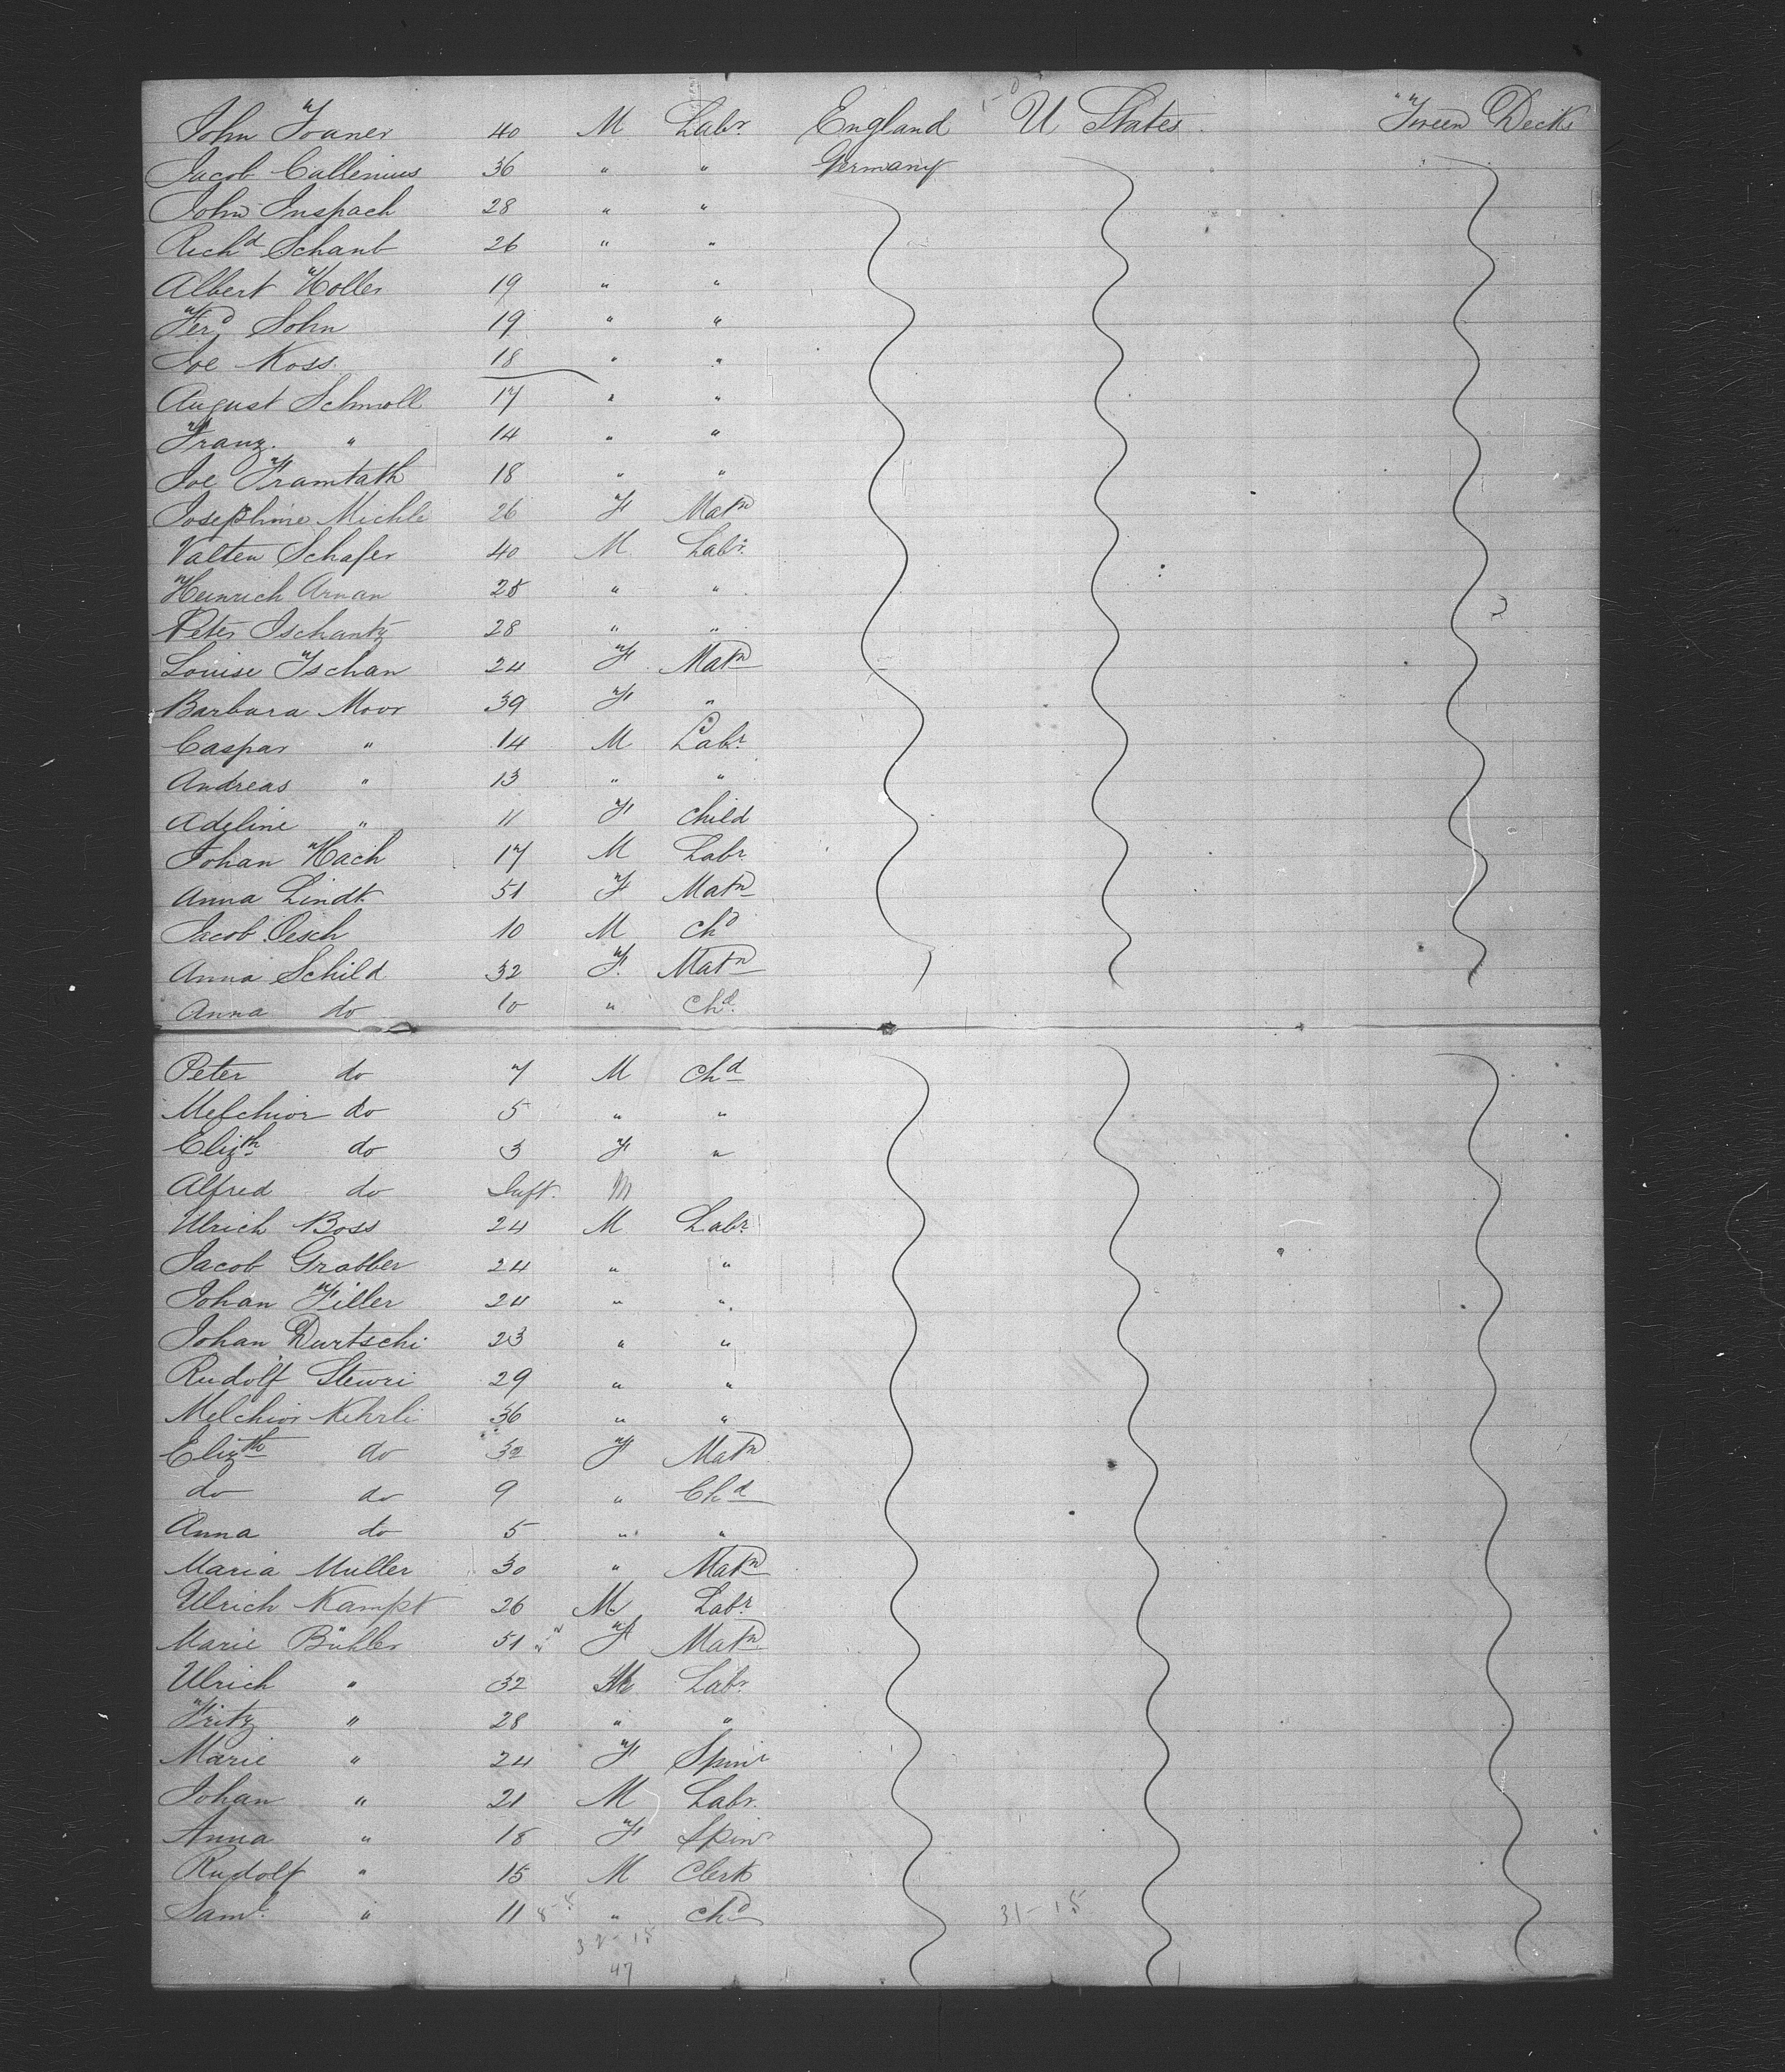 John Toaner 40 M Labr England U States Tween Decks
Jacob Cullenius 36 " " Germany
John Inspach 28 " "
Richd Schanb 26 " "
Albert Holler 19 " "
Ferd Sohn 19 " "
Joe Koss 18 " "
August Schmoll 17 " "
Franz " 14 " "
Joe Framtath 18 " "
Josephine Michle 26 F Matn
Valten Schafer 40 M Labr
Heinrich Arnan 28 " "
Peter Ischantz 28 " "
Louise Tschan 24 F Matn
Barbara Moor 39 F "
Caspar " 14 M Labr
Andreas " 13 " "
Adeline " 11 F Child
Johan Hach 17 M Labr
Anna Lindt 51 F Matn
Jacob Oesch 10 M Chd
Anna Schild 32 F Matn
Anna do 10 " Chd
Peter do 7 M Chd
Melchior do 5 " "
Elizth do 3 F "
Alfred do Inft M
Ulrich Boss 24 M Labr
Jacob Grabber 24 " "
Johan Filler 24 " "
Johan Durtschi 23 " "
Rudolf Stewri 29 " "
Melchior Kehrli 36 " "
Elizth do 32 F Matn
do do 9 " Chd
Anna do 5 " "
Maria Muller 30 " Matn
Ulrich Kampt 26 M Labr
Marie Bühler 51 F Matn
Ulrich " 32 M Labr
Fritz " 28 " "
Marie " 24 F Spinr
Johan " 21 M Labr
Anna " 18 F Spinr
Rudolf " 15 M Clerk
Saml " 11 " Chd 31-15
32-15
47